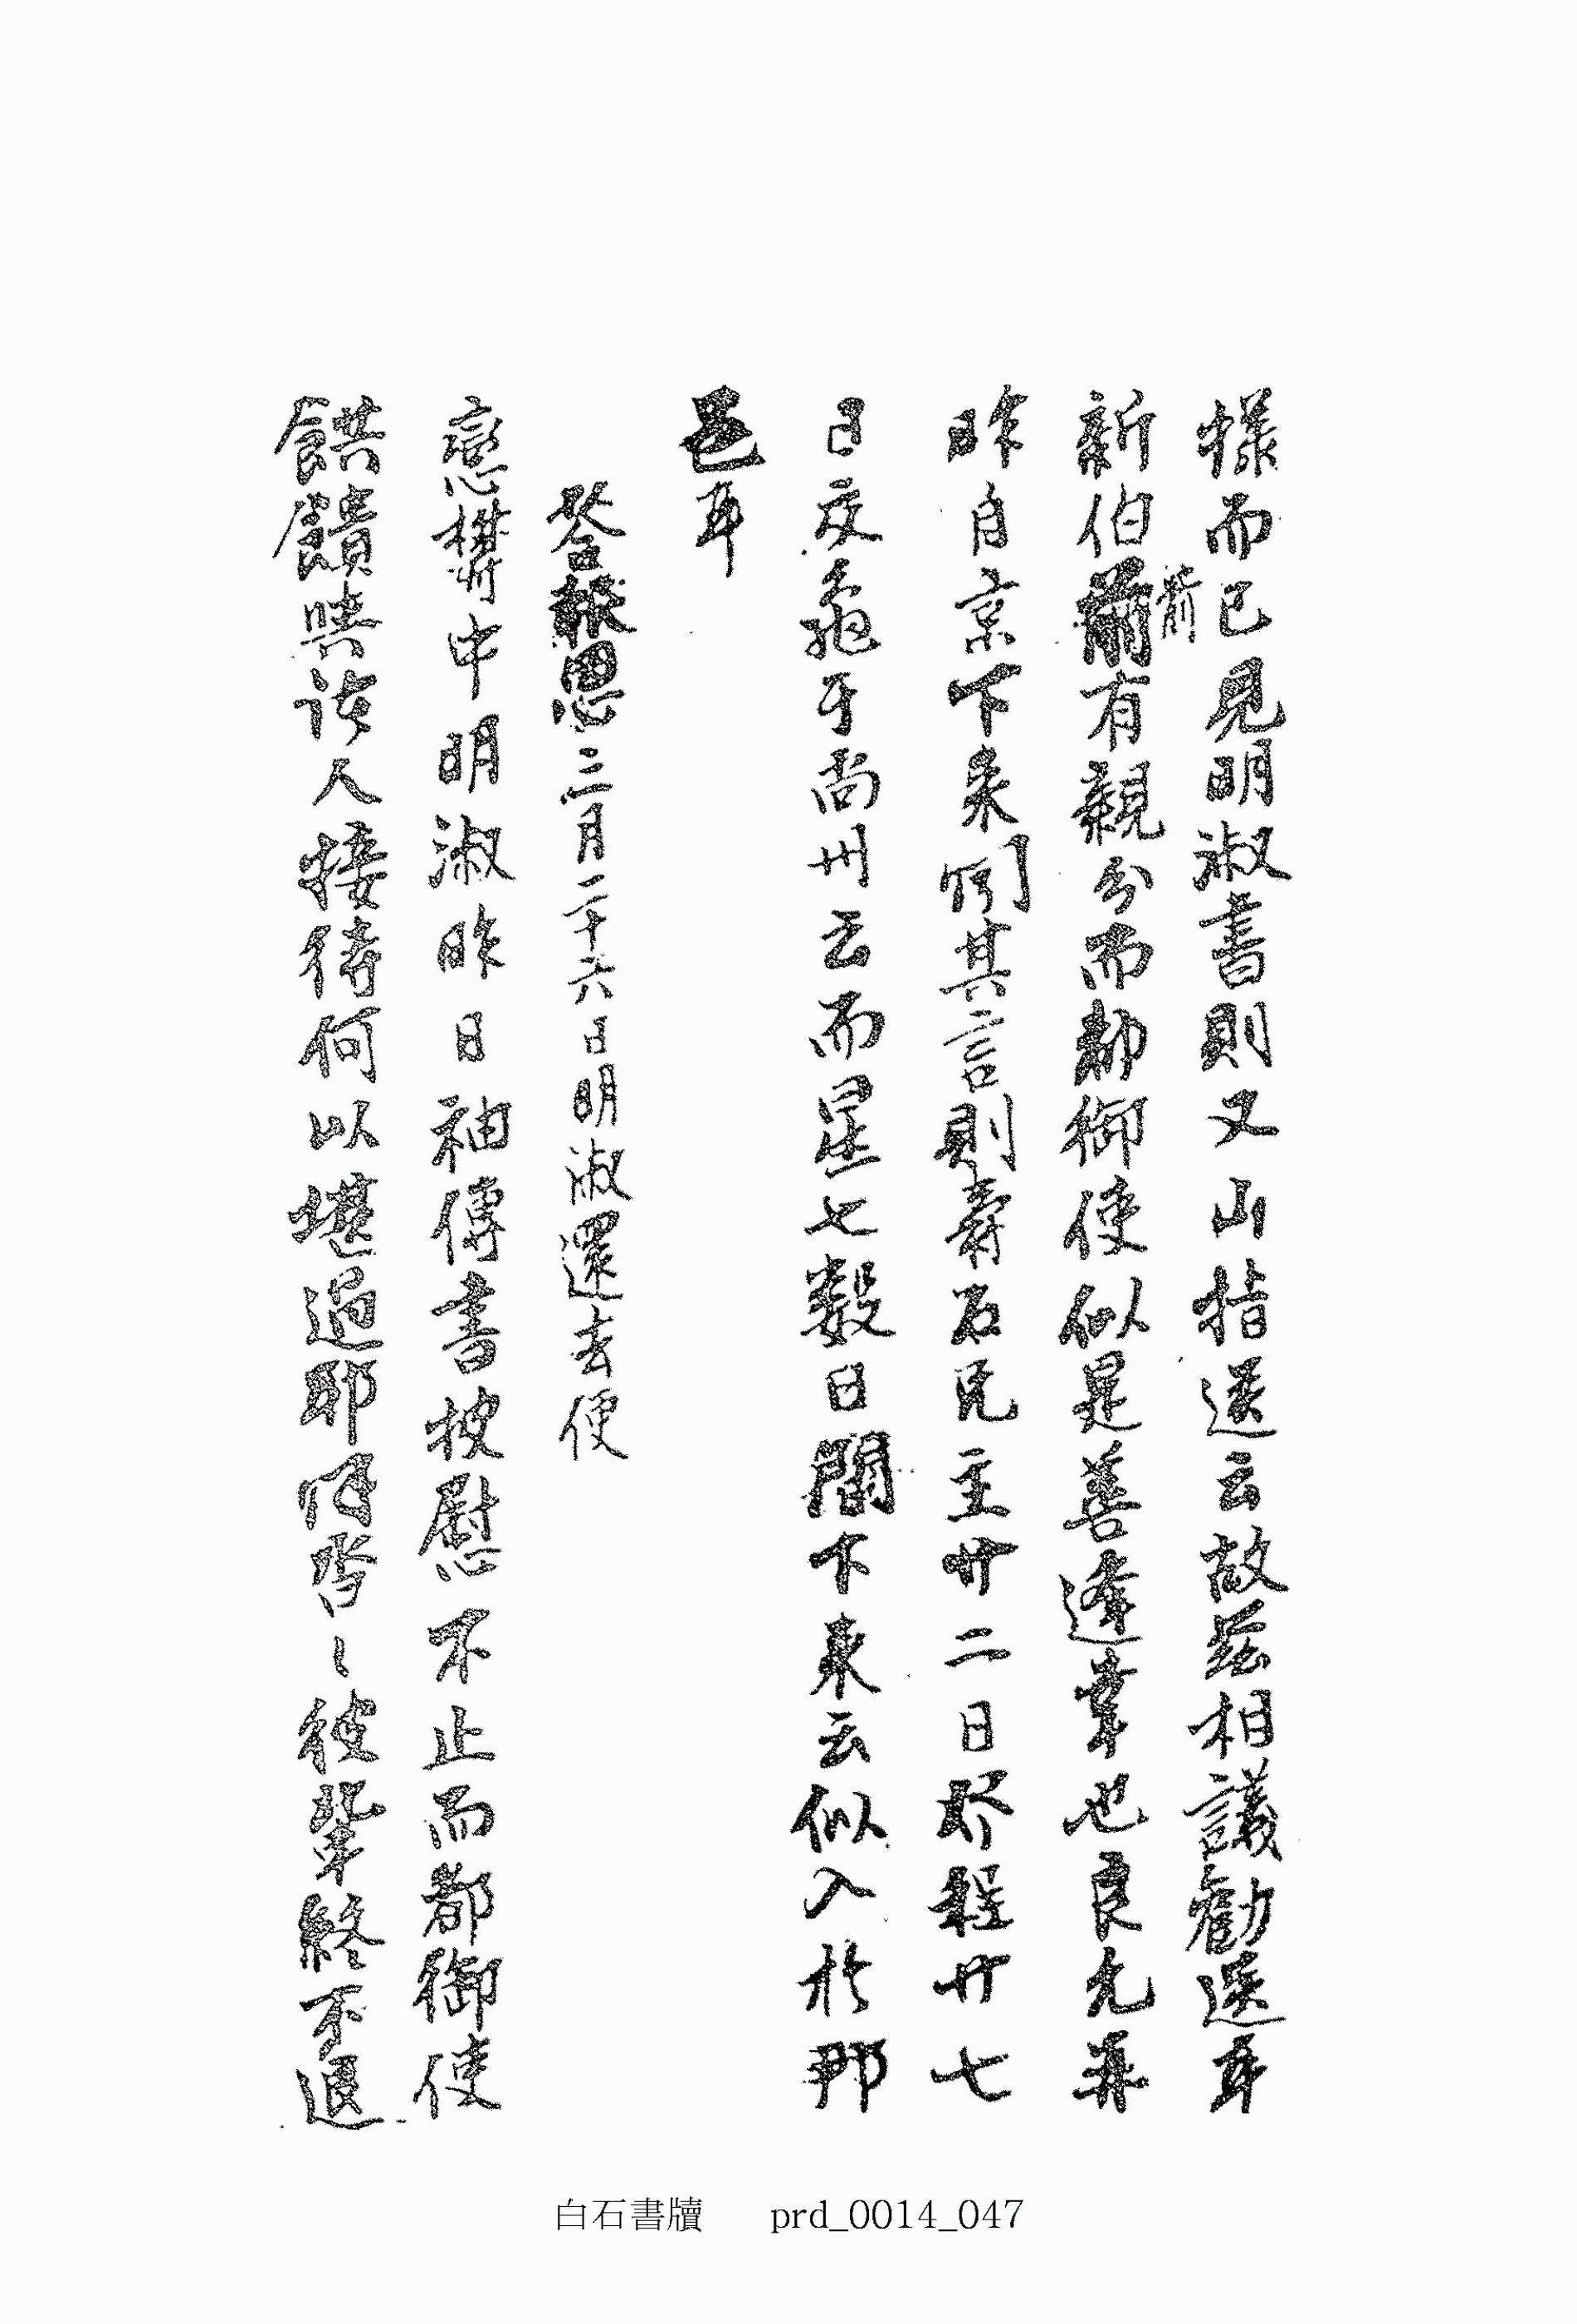 様而已見明淑書則又山指送云故玆相議勸送耳
新伯前前有親分而都御使似是善逢幸也良允再
昨自京下来問其言則壽石兄主廿二日發程廿七
日交龜于尙州云而星七数日間下来云似入於那
邑耳
答報恩三月二十六日明淑還去便
戀欝中明淑昨日袖傳書披慰不止而都御使
餽饋與諸人接待何以堪過耶冩沓〻彼輩終不退
白石書牘 prd_0014_047